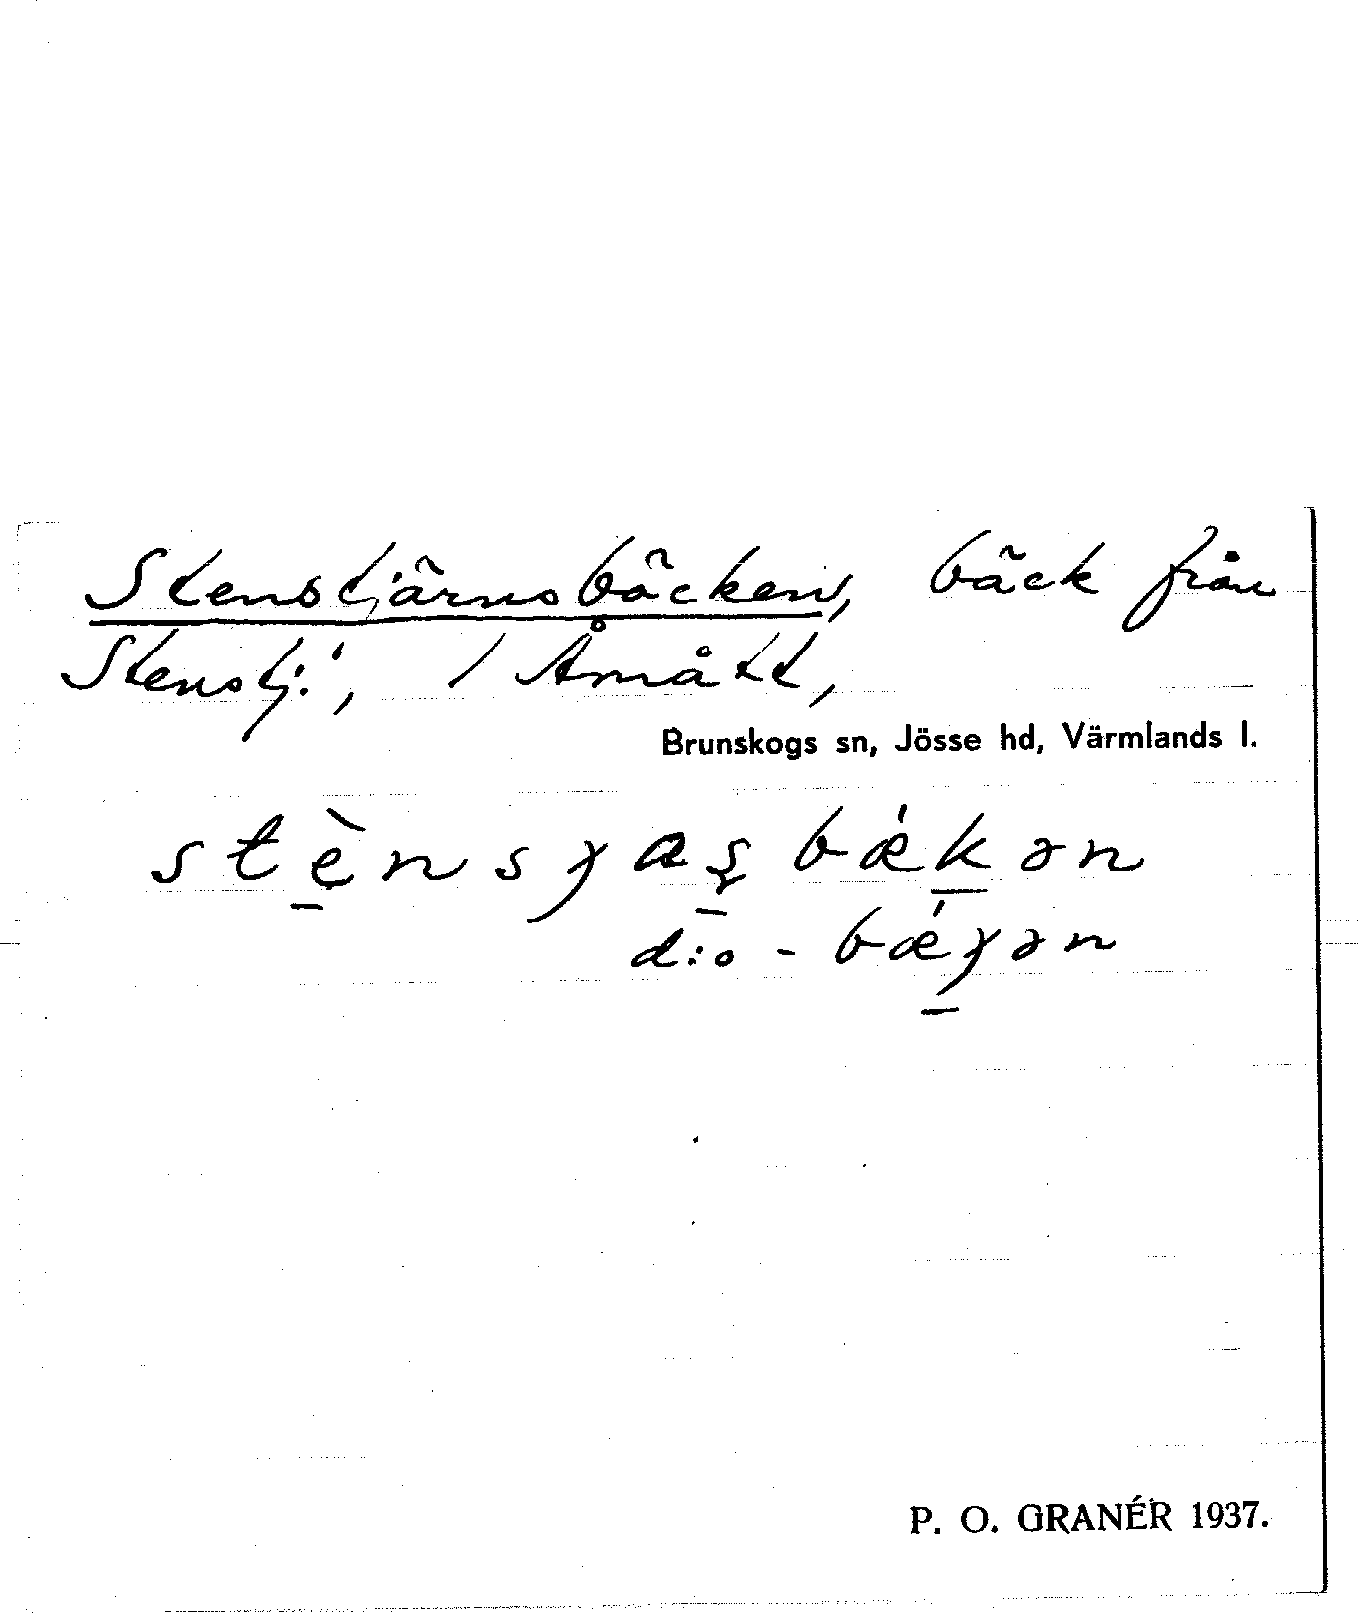 Stenstjärnsbäcken, bäck från
Stenstj:', / Åmått,
Brunskogs sn, Jösse hd, Värmlands l.
stè̠nsɟaʂ̠bǽk̠ən
d:o - bǽɟ̠ən
P. O. GRANÉR 1937.